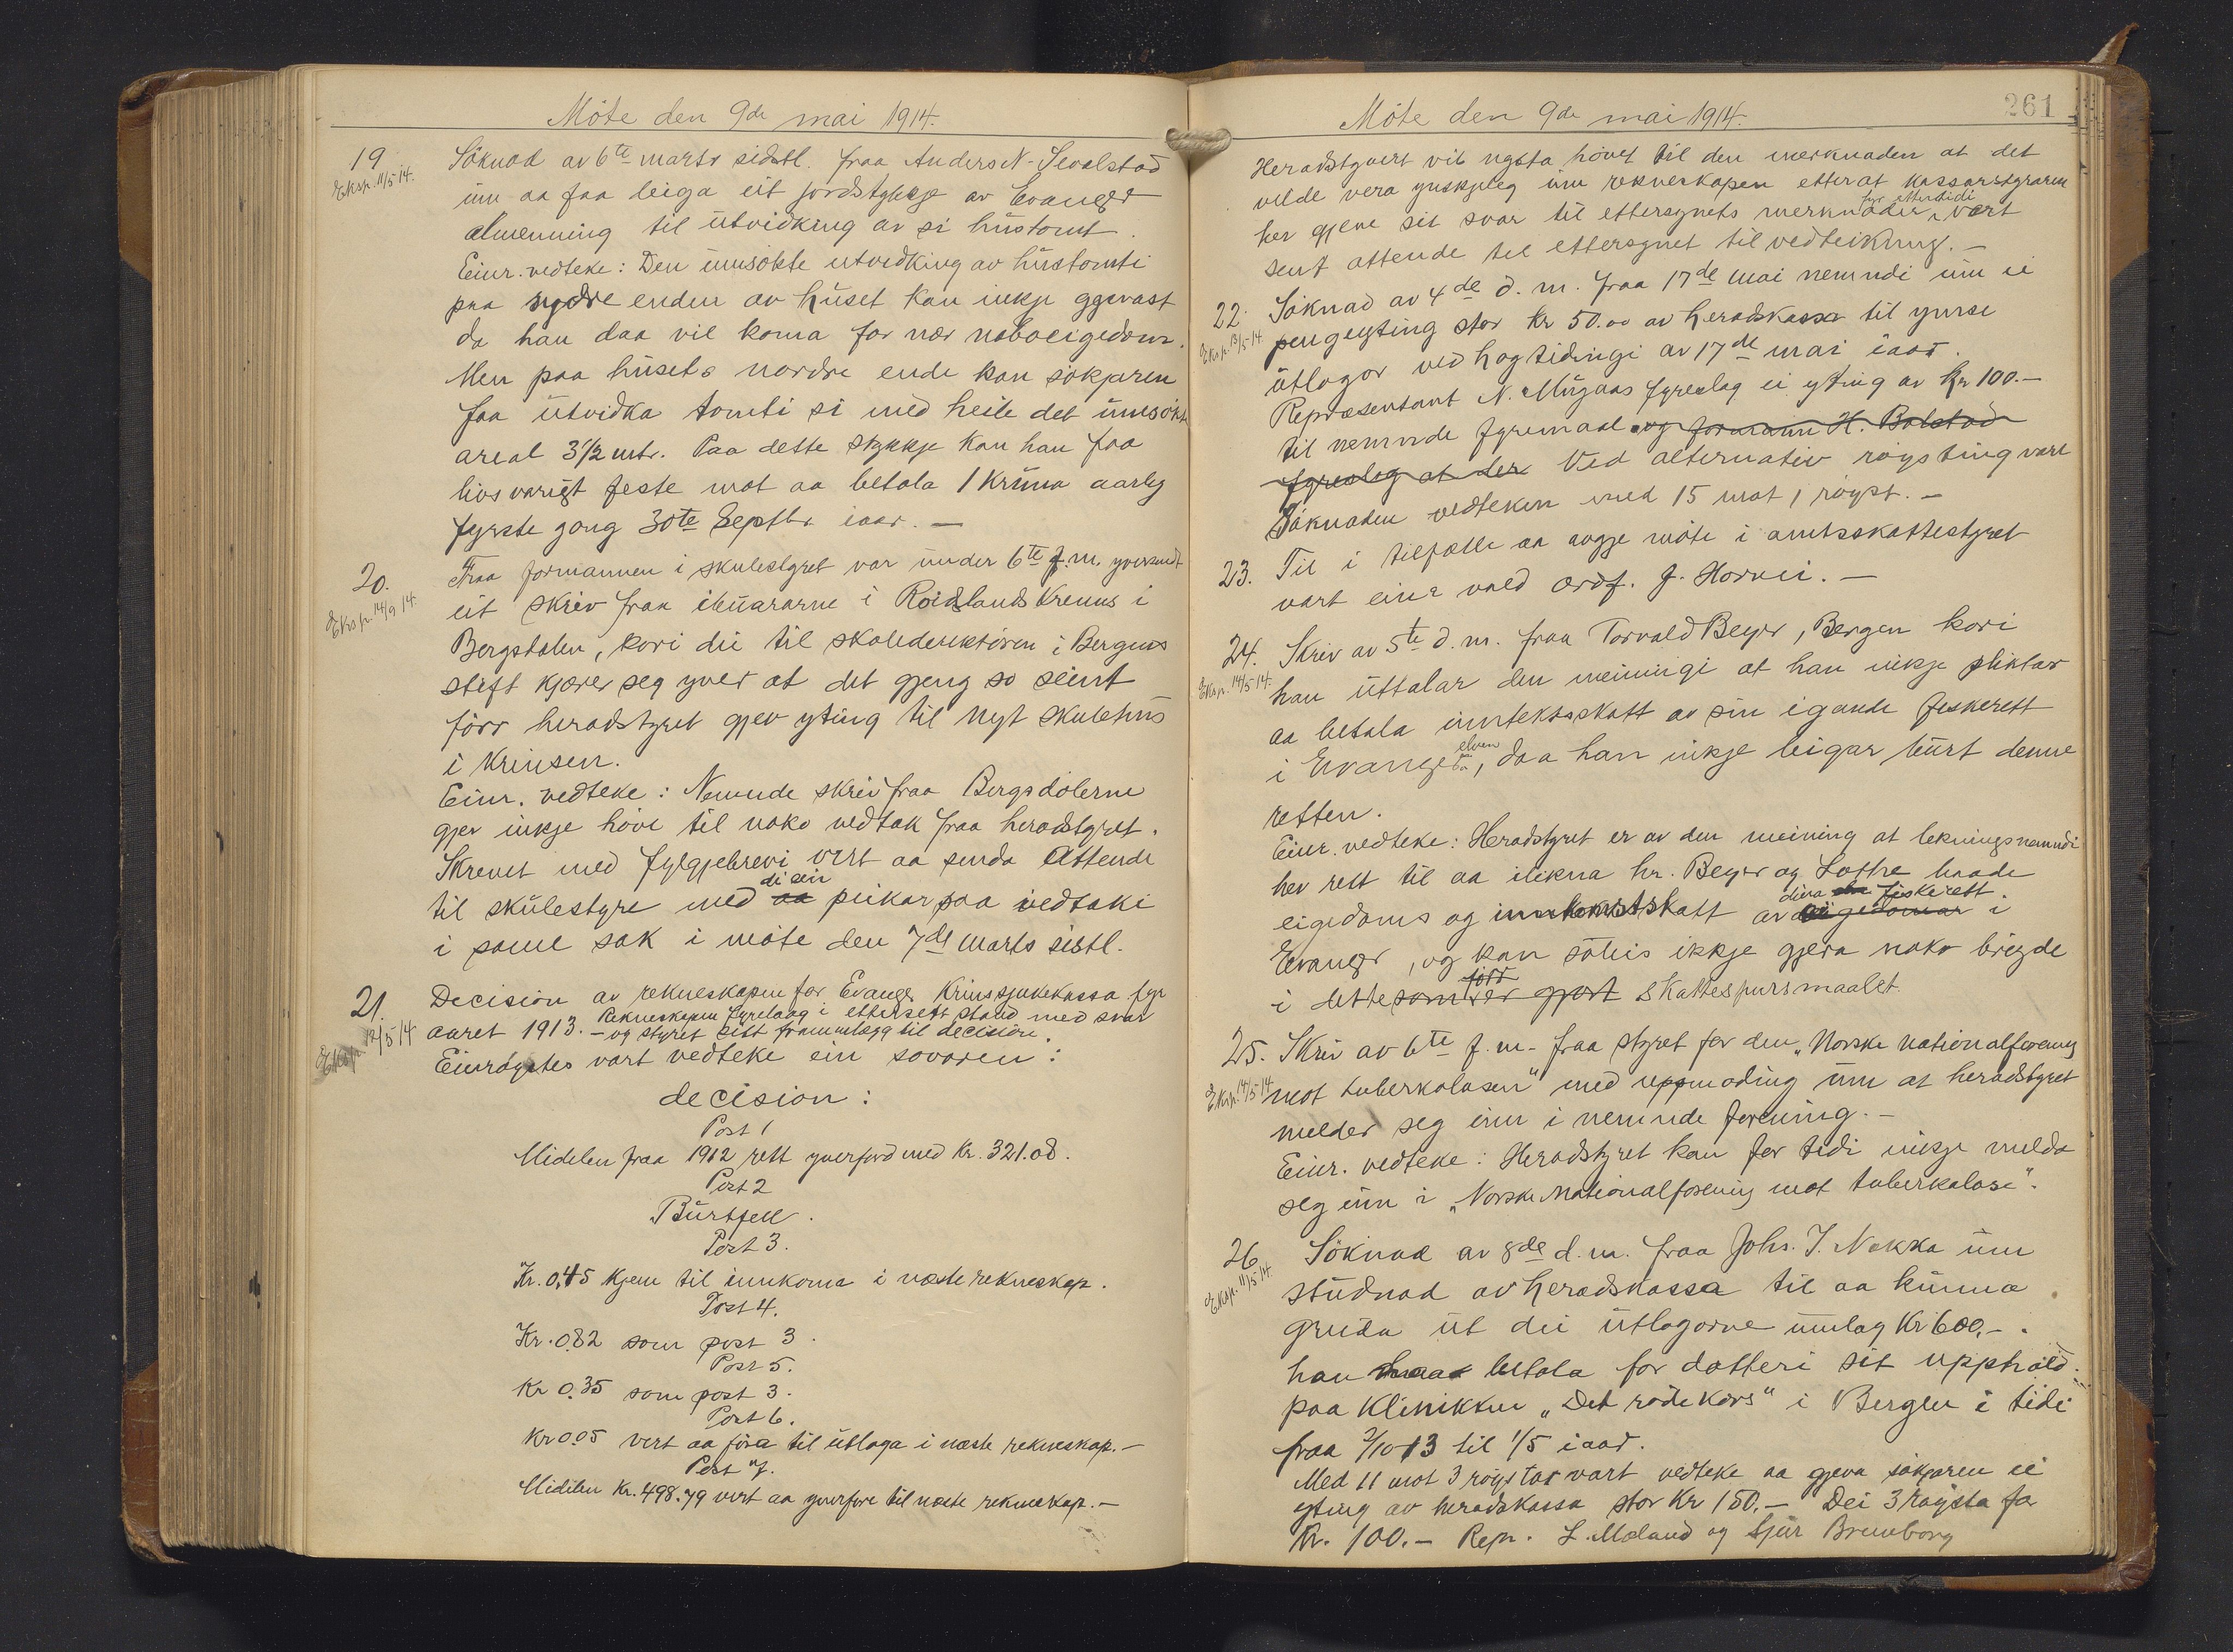 Möte den 9de mai 1914.
19
Eksp. 11/5 14.
Söknad av 6te marts sidstl. fraa Anders N. Sevalstad
um aa faa leiga eit jordstykkje av Evanger
almenning til utvidking av si hustomt.
Einr. vedteke: Den umsökte utvidking av hustomti
paa sydre enden av huset kan inkje gjevast
da han daa vil koma for nær naboeigedom.
Men paa husets nordre ende kan søkjaren
faa utvidka tomti si med heile det umsökte
areal 3 1/2 mtr. Paa dette stykkje kan han faa
livsvarigt feste mot aa betala 1 kruna aarleg
fyrste gong 30te Septbr. iaar. —
20.
Eksp. 14/9 14.
Fraa formannen i skulestyret var under 6te f.m. yversendt
eit skriv fraa ibuararne i Rödlands Krins i
Bergsdalen, kori dei til skoledirektören i Bergens
stift kjærer seg yver at det gjeng so seint
förr heradstyret gjev yting til nyt skulehus
i Krinsen.
Einr. vedteke: Nemnde skriv fraa Bergsdölerne
gjev inkje höve til noko vedtak fraa heradstyret.
Skrivet med fylgjebrevi vert aa senda attende
til skulestyre med aa di ein peikar paa vedtaki
i same sak i möte den 7de marts sistl.
21.
Eksp. 12/5 14
Decision av rekneskapen for Evanger Krinssjukekassa fyr
aaret 1913. — Rekneskapen fyrelaag i ettersett stand med svar
og styret sitt frammlegg til decision.
Einröystes vart vedteke ein sovoren:
decision:
Post 1
Midelen fraa 1912 rett yverförd med Kr. 321.08.
Post 2
Burtfell.
Post 3.
Kr. 0,45 kjem til innkoma i næste rekneskap.
Post 4.
Kr. 0.82 som post 3.
Post 5.
Kr 0.35 som post 3.
Post 6.
Kr 0.05 vert aa föra til utlaga i næste rekneskap. —
Post 7.
Midelen Kr. 498.79 vert aa yverföre til næste rekneskap. —
Möte den 9de mai 1914.
261
Heradstyret vil nytta hövet til den merknaden at det
vilde vera ynskjeleg um rekneskapen etter at kassastyraren
hev gjeve sit svar til ettersynets merknader, fyr ettertidi vart
sent attende til ettersynet til vedteikning. —
22.
Eksp. 13/5 14
Söknad av 4de d.m. fraa 17de mai nemndi um ei
pengeyting stor Kr 50.00 av heradskassa til ymse
utlagor ved högtidingi av 17de mai iaar.
Repræsentant N. Mugaas fyreslog ei yting av Kr 100.—
til nemnde fyremaal og formann H. Bolstad
fyreslog at der Ved alternativ röysting vart
Söknaden vedteken med 15 mot 1 röyst. —
23. Til i tilfælle aa möte i amtsskattestyret
vart einr vald ordf. J. Horvei. —
24.
Eksp. 14/5 14.
Skriv av 5te d.m. fraa Torvald Beyer, Bergen kori
han uttalar den meiningi at han inkje pliktar
aa betala inntektsskatt av sin igande fiskerett
i Evangerelven, daa han inkje leigar burt denne
retten.
Einr. vedteke: Heradstyret er av den meining at likningsnemndi
hev rett til aa ilikna hr. Beyer og Lothe baade
eigedoms og inntektsskatt av deira fiskerett eigedomar i
Evanger, og kan såleis ikkje gjera noko brigde
i dette som förr er gjort skattespursmaalet.
25.
Eksp. 14/5 14
Skriv av 6te f.m. fraa styret for den „Norske nationalforening
mot tuberkulosen" med uppmoding um at heradstyret
melder seg inn i nemnde forening. —
Einr. vedteke: Heradstyret kan for tidi inkje melda
seg inn i „Norske Nationalforening mot tuberkulose".
26.
Eksp. 11/5 14.
Söknad av 8de d.m. fraa Johs. J. Nokka um
studnad av heradskassa til aa kunna
greida ut dei utlagorne umlag Kr 600,—.
han betala for dotteri sit upphald
paa Klinikken „Det röde Kors" i Bergen i tidi
fraa 2/10 13 til 1/5 iaar.
Med 11 mot 3 röystar vart vedteke aa gjeva søkjaren ei
yting av heradskassa stor Kr 150.— Dei 3 röysta for
Kr. 100.— Repr. L. Mæland og Sjur Brunborg